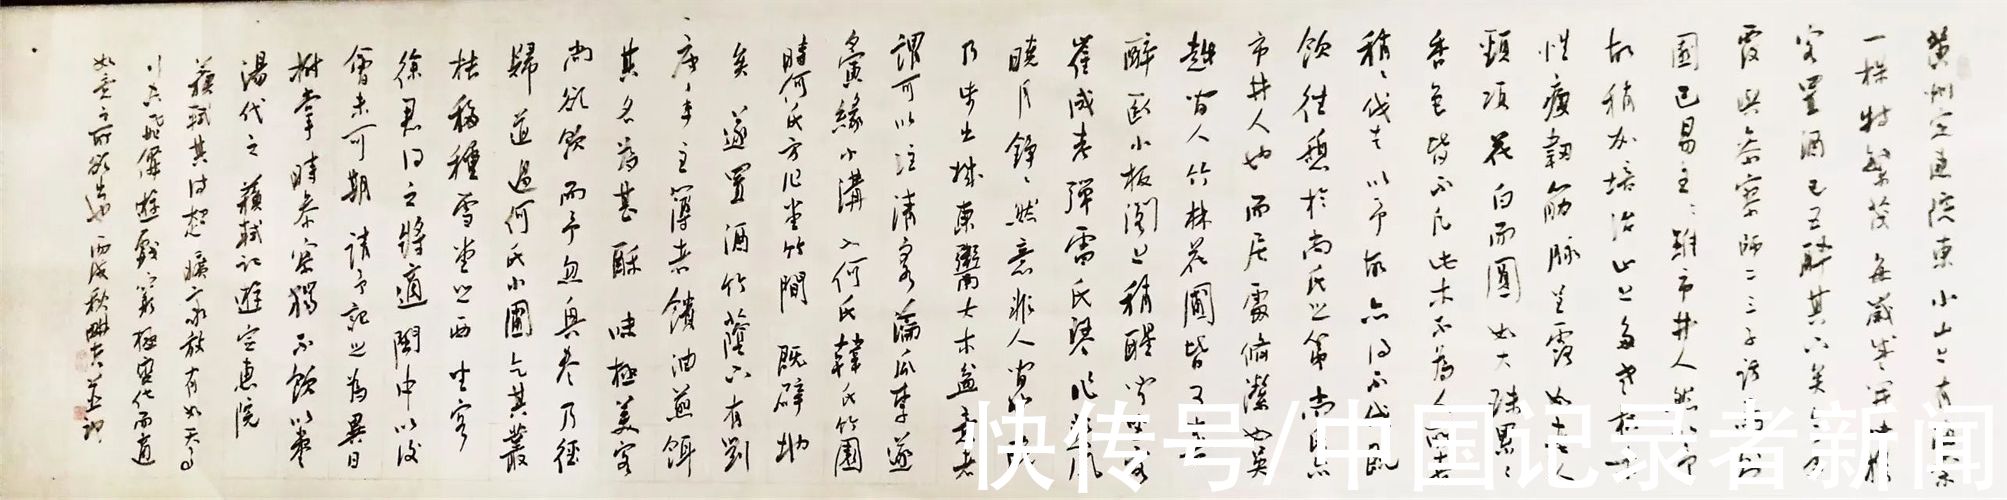 黄州定惠院東小山上有海棠
一株特繁茂每歲盛開必攜
客置酒已五醉其下矣今年
復與參寥師二三子訪焉則
園已易主主雖市井人然以予
故稍加培治山上多老枳木
性瘦韌筋脈呈露如老人
頸項花白而圓如大珠纍纍
香色皆不凡此木不為人所喜
稍稍伐去以予故亦得不伐既
飲往憩於尚氏之第尚氏亦
市井人也而居處修潔如吳
越間人竹林花圃皆可喜
醉臥小板閣上稍醒聞坐客
崔成老彈雷氏琴作悲風
曉月錚錚然意非人間也晚
乃步出城東鬻大木盆意者
謂可以注清泉瀹瓜李遂
夤緣小溝入何氏韓氏竹園
時何氏方作堂竹間既闢地
矣遂置酒竹蔭下有劉
唐年主簿者饋油煎餌
其名為甚酥味極美客
尚欲飲而予忽興盡乃徑
歸道過何氏小圃乞其藂
桔移種雪堂之西坐客
徐君得之將適閩中以後
會未可期請予記之為異日
拊掌時參寥獨不飲以棗
湯代之蘇軾記遊定惠院
蘇軾其詩超曠豪放有如天馬
如意之所欲出也丙戌秋
快传号/中国记录者新闻